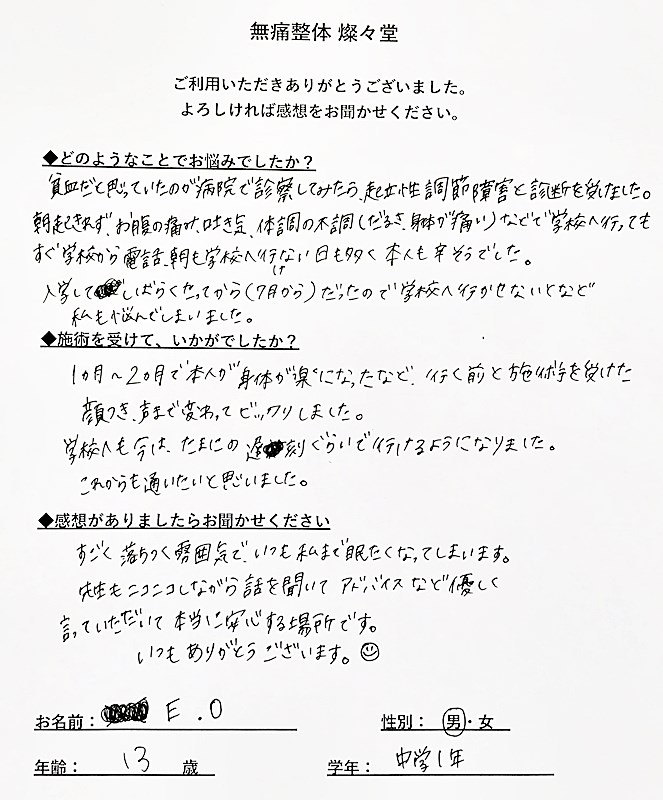 無痛整体 燦々堂
ご利用いただきありがとうございました。
よろしければ感想をお聞かせください。
◆どのようなことでお悩みでしたか？
貧血だと思っていたのが病院で診察してみたら、起立性調節障害と診断を受けました。
朝起きれず、お腹の痛み、吐き気、体調の不調（だるさ、身体が痛い）などで学校へ行っても
すぐ学校から電話、朝も学校へ行けない日も多く本人も辛そうでした。
入学してしばらくたってから（7月から）だったので学校へ行かせないとなど
私も悩んでしまいました。
◆施術を受けて、いかがでしたか？
1ヵ月～2ヵ月で本人が身体が楽になったなど、行く前と施術を受けた
顔つき、声まで変わってビックリしました。
学校へも今は、たまにの遅刻ぐらいで行けるようになりました。
これからも通いたいと思いました。
◆感想がありましたらお聞かせください
すごく落ちつく雰囲気で、いつも私まで眠たくなってしまいます。
先生もニコニコしながら話を聞いてアドバイスなど優しく
言っていただいて本当に安心する場所です。
いつもありがとうございます。☺
お名前： E.O 性別： 男・女
年齢： 13 歳 学年： 中学1年